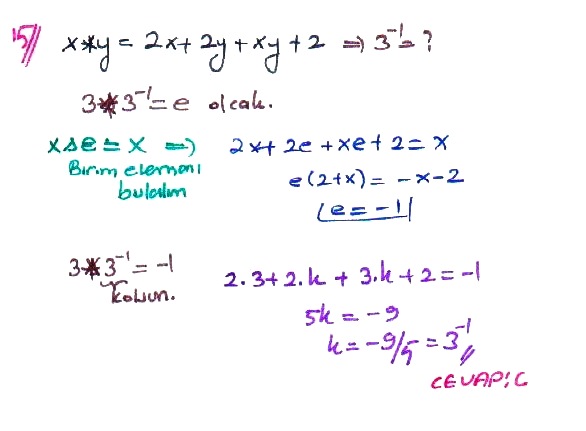 15// x*y = 2x + 2y + xy + 2 ⇒ 3⁻¹ = ?
3*3⁻¹ = e olcak.
x∆e = x ⇒) 2x + 2e + xe + 2 = x
Birim elemanı
bulalım
e(2+x) = -x-2
e = -1
3*3⁻¹ = -1
k olsun.
2.3 + 2.k + 3.k + 2 = -1
5k = -9
k = -9/5 = 3⁻¹//
CEVAP: C